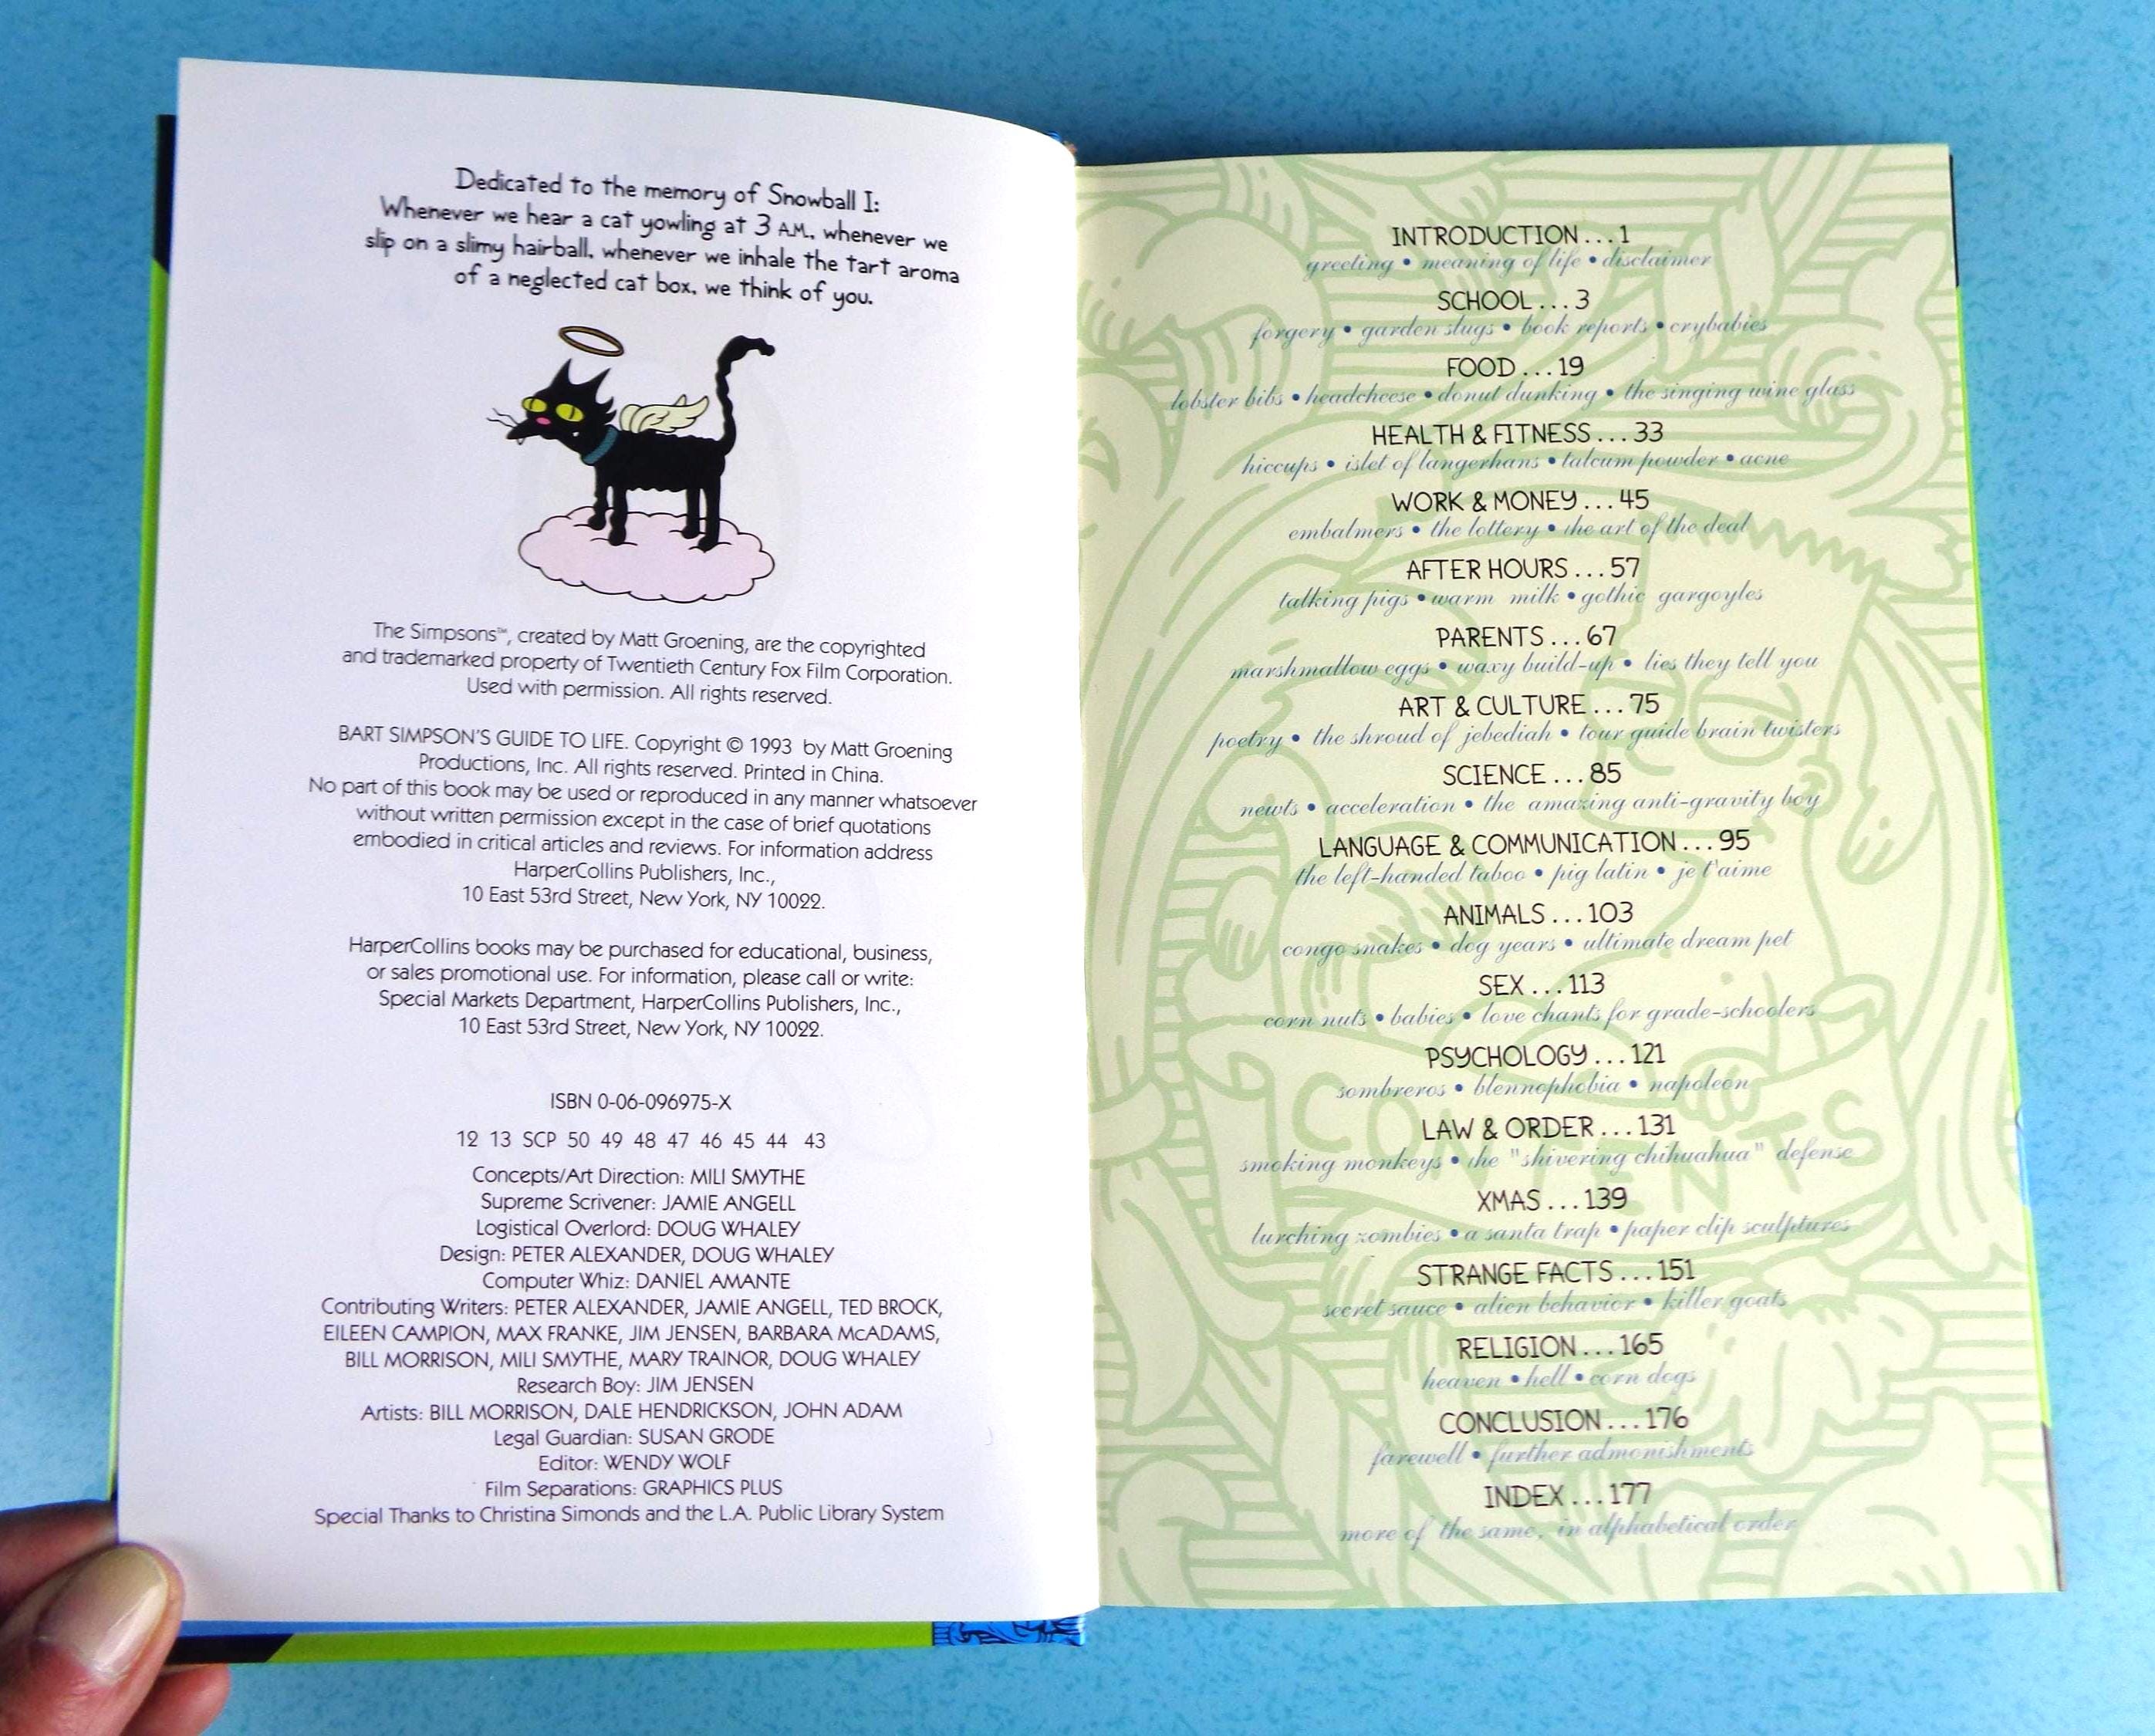 Dedicated to the memory of Snowball I:
Whenever we hear a cat yowling at 3 A.M., whenever we
slip on a slimy hairball, whenever we inhale the tart aroma
of a neglected cat box, we think of you.
The Simpsons™, created by Matt Groening, are the copyrighted
and trademarked property of Twentieth Century Fox Film Corporation.
Used with permission. All rights reserved.
BART SIMPSON'S GUIDE TO LIFE. Copyright © 1993 by Matt Groening
Productions, Inc. All rights reserved. Printed in China.
No part of this book may be used or reproduced in any manner whatsoever
without written permission except in the case of brief quotations
embodied in critical articles and reviews. For information address
HarperCollins Publishers, Inc.,
10 East 53rd Street, New York, NY 10022.
HarperCollins books may be purchased for educational, business,
or sales promotional use. For information, please call or write:
Special Markets Department, HarperCollins Publishers, Inc.,
10 East 53rd Street, New York, NY 10022.
ISBN 0-06-096975-X
12 13 SCP 50 49 48 47 46 45 44 43
Concepts/Art Direction: MILI SMYTHE
Supreme Scrivener: JAMIE ANGELL
Logistical Overlord: DOUG WHALEY
Design: PETER ALEXANDER, DOUG WHALEY
Computer Whiz: DANIEL AMANTE
Contributing Writers: PETER ALEXANDER, JAMIE ANGELL, TED BROCK,
EILEEN CAMPION, MAX FRANKE, JIM JENSEN, BARBARA McADAMS,
BILL MORRISON, MILI SMYTHE, MARY TRAINOR, DOUG WHALEY
Research Boy: JIM JENSEN
Artists: BILL MORRISON, DALE HENDRICKSON, JOHN ADAM
Legal Guardian: SUSAN GRODE
Editor: WENDY WOLF
Film Separations: GRAPHICS PLUS
Special Thanks to Christina Simonds and the L.A. Public Library System
INTRODUCTION...1
greeting • meaning of life • disclaimer
SCHOOL...3
forgery • garden slugs • book reports • crybabies
FOOD...19
lobster bibs • headcheese • donut dunking • the singing wine glass
HEALTH & FITNESS...33
hiccups • islet of langerhans • talcum powder • acne
WORK & MONEY...45
embalmers • the lottery • the art of the deal
AFTER HOURS...57
talking pigs • warm milk • gothic gargoyles
PARENTS...67
marshmallow eggs • waxy build-up • lies they tell you
ART & CULTURE...75
poetry • the shroud of jebediah • tour guide brain twisters
SCIENCE...85
newts • acceleration • the amazing anti-gravity boy
LANGUAGE & COMMUNICATION...95
the left-handed taboo • pig latin • je t'aime
ANIMALS...103
congo snakes • dog years • ultimate dream pet
SEX...113
corn nuts • babies • love chants for grade-schoolers
PSYCHOLOGY...121
sombreros • blennophobia • napoleon
CONTENTS
LAW & ORDER...131
smoking monkeys • the "shivering chihuahua" defense
XMAS...139
lurching zombies • a santa trap • paper clip sculptures
STRANGE FACTS...151
secret sauce • alien behavior • killer goats
RELIGION...165
heaven • hell • corn dogs
CONCLUSION...176
farewell • further admonishments
INDEX...177
more of the same, in alphabetical order